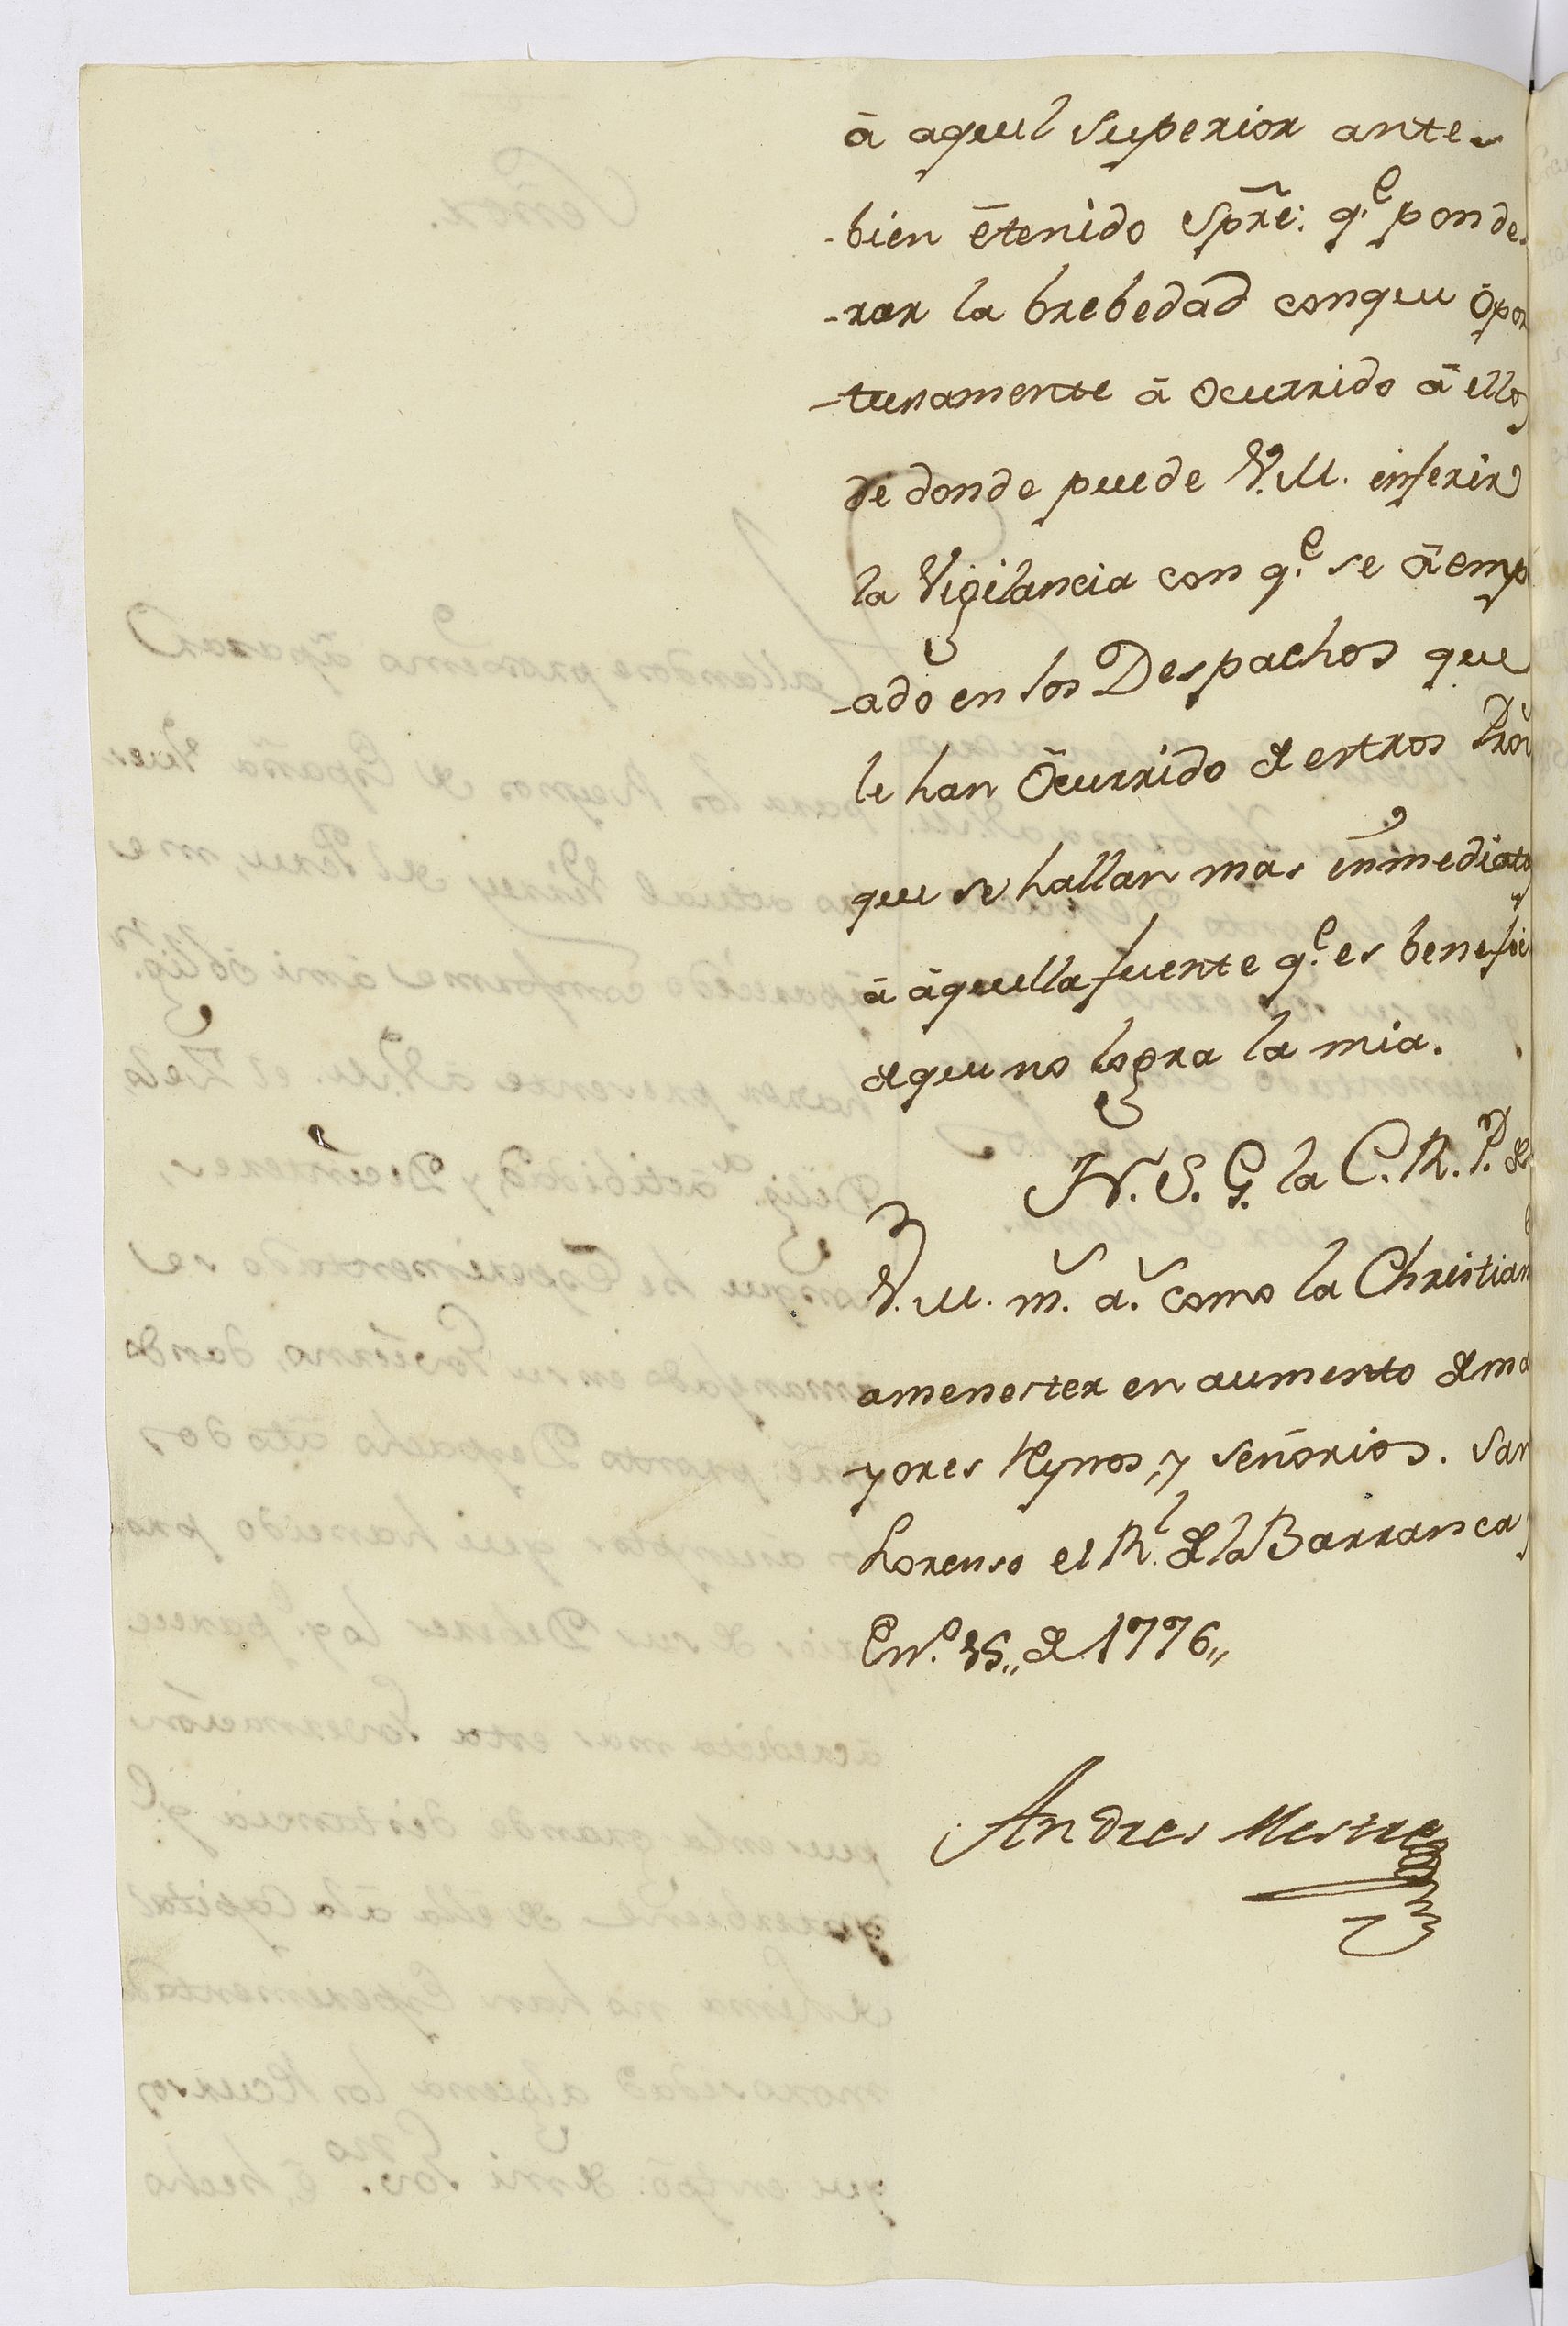 à aquel Superior ante
-bien ētenido Spre: q.e ponde
-rar la brebedad conque õpor
-tunamente â ocurrido â ellos
de donde puede V.M. inferir
la Vigilancia con q.e se ã emp
-ado en los Despachos que
le han õcurrido de estros
que se hallan mas inmediatos
â âquella fuente q.e es benefici
de que no logra la mia.
N. S. G. la C. R. P. de
V. M. m.s a.s como la Christian
amenester en aumento de ma
yores Reynos, y señorios. San
Lorenso el R.l de la Barranca
En.o de 1776,,
Andres Mestre